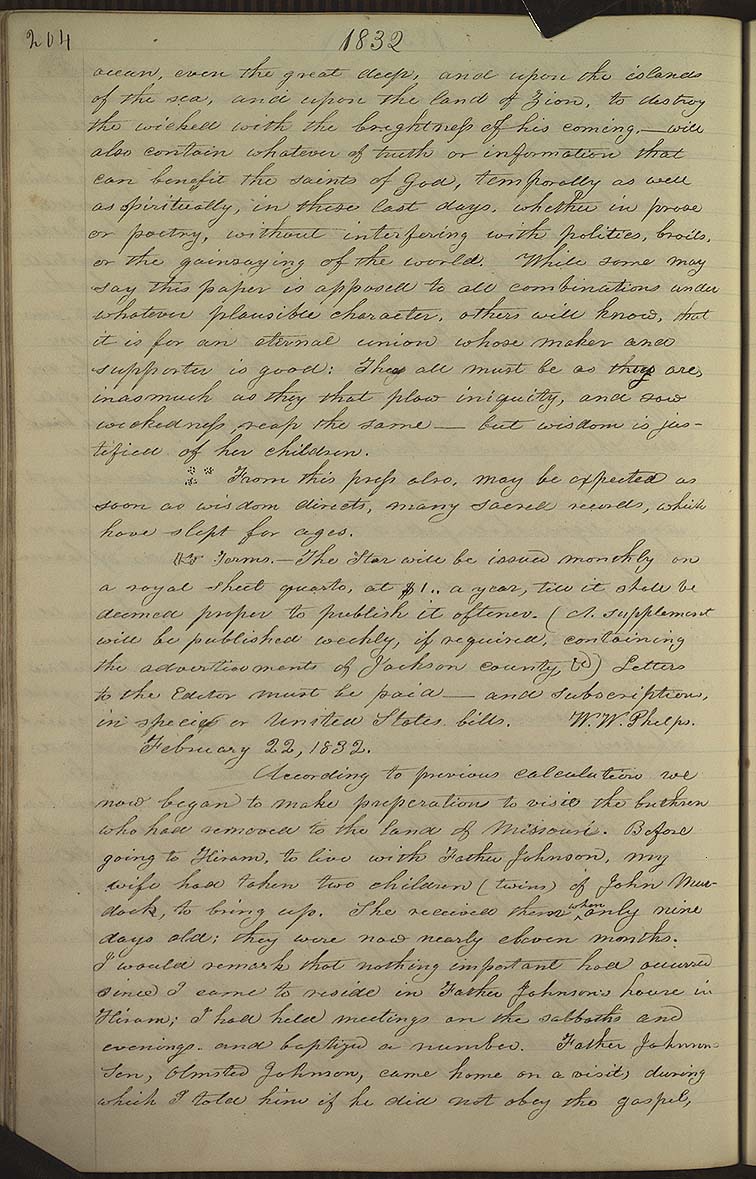 204
1832
ocean, even the great deep, and upon the islands
of the sea, and upon the land of Zion, to destroy
the wicked with the brightness of his coming,— will
also contain whatever of truth or information that
can benefit the saints of God, temporally as well
as spiritually, in these last days, whether in prose
or poetry, without interfering with politics, broils,
or the gainsaying of the world. While some may
say this paper is opposed to all combinations under
whatever plausible character, others will know, that
it is for an eternal union whose maker and
supporter is good: They all must be as they are,
inasmuch as they that plow iniquity, and sow
wickedness, reap the same — but wisdom is jus-
tified of her children.
From this press also, may be expected as
soon as wisdom directs, many sacred records, which
have slept for ages.
☞ Terms.— The Star will be issued monthly on
a royal sheet quarto, at $1.. a year, till it shall be
deemed proper to publish it oftener. (A supplement
will be published weekly, if required, containing
the advertisements of Jackson county, &c) Letters
to the Editor must be paid — and subscriptions,
in specie or United States bills. W. W. Phelps.
February 22, 1832.
According to previous calculation we
now began to make preperation to visit the brethren
who had removed to the land of Missouri. Before
going to Hiram, to live with Father Johnson, my
wife had taken two children (twins) of John Mur-
dock, to bring up. She received them when only nine
days old; they were now nearly eleven months.
I would remark that nothing important had occurred
since I came to reside in Father Johnson's house in
Hiram; I had held meetings on the sabbaths and
evenings. and baptized a number. Father Johnson's
Son, Olmsted Johnson, came home on a visit, during
which I told him if he did not obey the gospel,